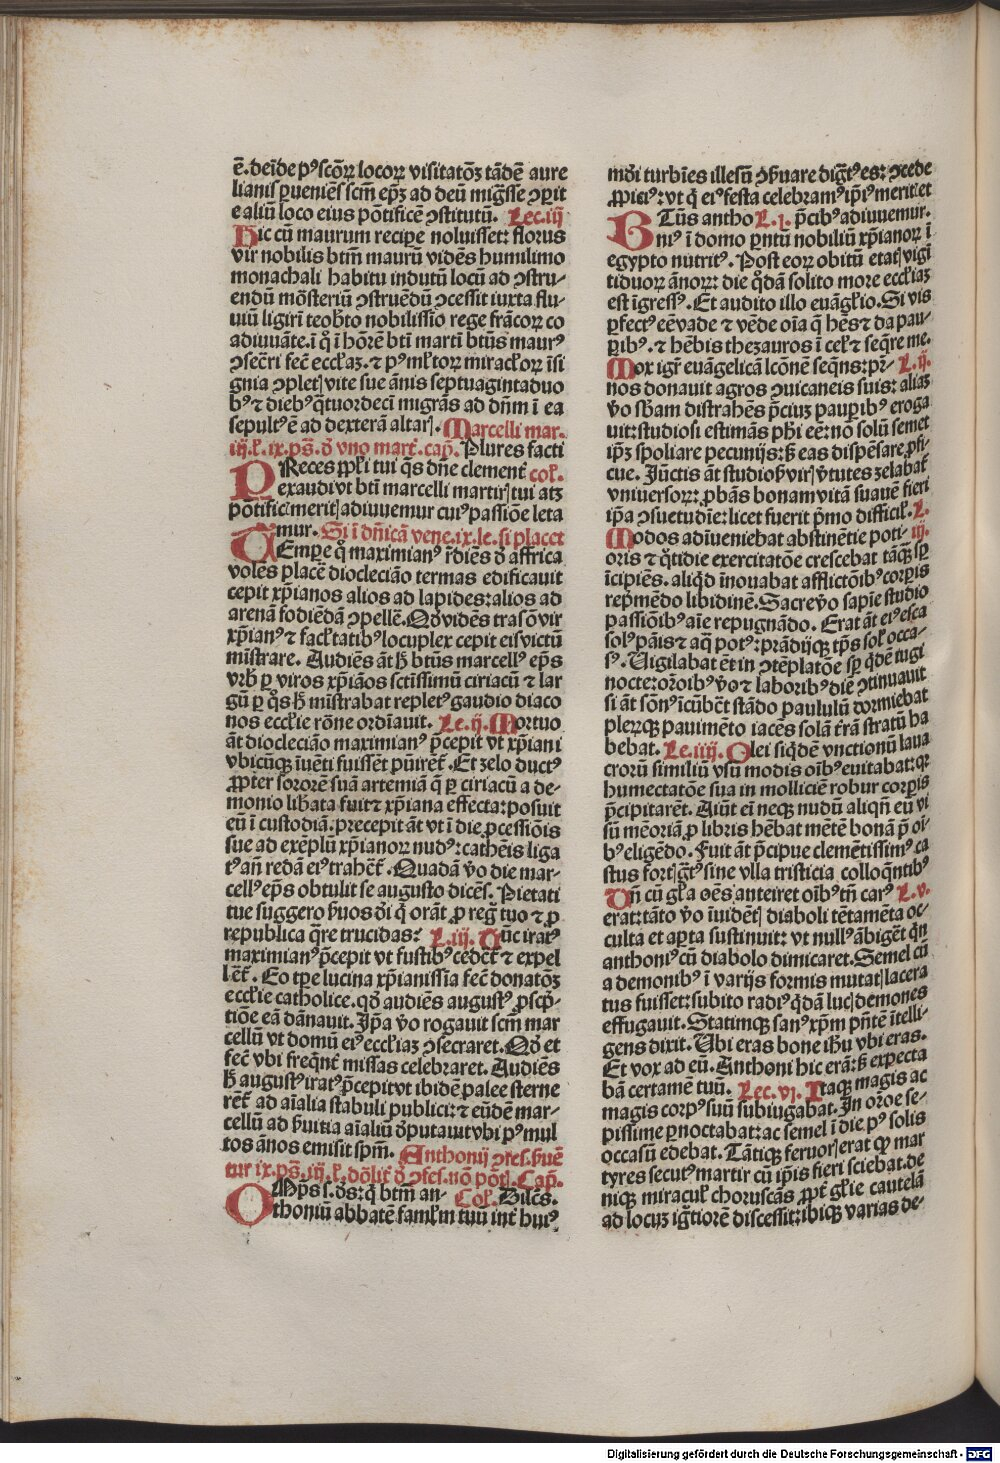 ē. deīde pꝰ scōꝝ locoꝝ visitatōꝫ tādē aure
lianis ꝑuenieṡ scm̄ epꝫ ad deū migꝝsse ꝯꝑit
e aliū loco eius pōtificē ꝯstitutū. Lec. iij
Hic cū maurum recipe noluisset: florus
vir nobilis btm̄ maurū vidēs humilimo
monachali habitu indutū locū ad ꝯstru-
endū mōsteriū ꝯstruēdū ꝯcessit iuxta flu-
uiū ligirī teobto nobilissīo rege frācoꝝ co
adiuuāte. ī qͦ ī hōrē bti marti btūs maurꝰ
ꝯsecri fec̄ eccl̄iaꝫ. ⁊ pꝰ ml̄toꝝ miracl̄oꝝ īsi
gnia ꝯpletꝭ vite sue ānis septuagintaduo
bꝰ ⁊ diebꝰ qͣtuordecī migrās ad dn̄m ī ea
sepultꝰ ē ad dexterā altarꝭ. Marcelli mar.
iij. l̄. ix. ps̄. ð vno mart̄. cap̄. Plures facti
PReces ppl̄i tui qs̄ dn̄e clement̄ col̄.
exaudi vt btī marcelli martirꝭ tui atꝫ
pōtificꝭ meritꝭ adiuuemur cuiꝰ passiōe leta
mur. Si ī dn̄icā vene. ix. le. si placet
TEmpe qͦ maximianꝰ r̄diēs ð affrica
volēs placē diocleciāo termas edificauit
cepit xp̄ianos alios ad lapides: alios ad
arenā fodiēdā ꝯpellē. Qð vidēs traso vir
xp̄ianꝰ ⁊ facl̄tatibꝰ locuplex cepit eis victū
mīstrare. Audiēs āt h̄ btūs marcellꝰ ep̄s
vrbꝭ ꝑ viros xp̄iāos sctīssimū ciriacū ⁊ lar
gū ꝑ qͦs h̄ mīstrabat repletꝰ gaudio diaco
nos eccl̄ie rōne ordīauit. Le. ij. Mortuo
āt diocleciāo maximianꝰ p̄cepit vt xp̄iani
vbicūqꝫ īuēti fuissēt pūiret̄. Et zelo ductꝰ
ꝓpter sororē suā artemiā q̄ ꝑ ciriacū a de-
monio lib̄ata fuit ⁊ xp̄iana effecta: posuit
eū ī custodiā. precepit āt vt ī die ꝓcessiōis
sue ad exēplū xp̄ianoꝝ nudꝰ: cathēis liga
tꝰ an̄ redā eiꝰ trahet̄. Quadā v̄o die mar-
cellꝰ ep̄s obtulit se augusto dicēs. Pietati
tue suggero ẜuos ði qͥ orāt ꝓ regͦ tuo ⁊ ꝓ
republica qͣre trucidas: L. iij. Tūc iratꝰ
maximianꝰ p̄cepit vt fustibꝰ cedēt̄ ⁊ expel
let̄. Eo tꝑe lucina xp̄ianissīa fec̄ donatōꝫ
eccl̄ie catholice. qð audiēs augustꝰ ꝓscp̄-
tiōe eā dānauit. Ip̄a v̄o rogauit scm̄ mar
cellū vt domū eiꝰ eccl̄iaꝫ ꝯsecraret. Qð et
fec̄ vbi freqn̄t̄ missas celebraret. Audiēs
h̄ augustꝰ iratꝰ p̄cepit vt ibidē palee sterne
ret̄ ad aīalia stabuli publici: ⁊ eūdē mar-
cellū ad ẜuitia aīaliū ðputauit vbi pꝰ mul
tos ānos emisit spm̄. Anthonij ꝯfes. ẜuē
tur ix. ps̄. iij. l̄. dōlit̄ ð ꝯfes. nō pōt. Cap̄.
OMp̄s s. ds: qͥ btm̄ an- Col̄. Dilc̄s.
thoniū abbatē faml̄m tuū int̄ huiꝰ
mūdi turbīes illesū ꝯẜuare digtꝰ es: ꝯcede
ꝓpiciꝰ: vt qͥ eiꝰ festa celebramꝰ ipiꝰ meritꝭ et
BTūs antho L. j. p̄cibꝰ adiuuemur.
niꝰ ī domo pn̄tū nobiliū xp̄ianoꝝ ī
egypto nutritꝰ. Post eoꝝ obitū etatꝭ vigī
tiduoꝝ ānoꝝ: die qͣdā solito more eccl̄iaꝫ
est īgressꝰ. Et audito illo euāgl̄io. Si vis
ꝑfectꝰ eē vade ⁊ vēde oīa q̄ hēs ⁊ da pau-
ꝑibꝰ. ⁊ hēbis thezauros ī cel̄ ⁊ seqͣre me.
Mox igr̄ euāgelicā lcōnē seqn̄s: pr̄- L. ij.
nos donauit agros ꝯuicaneis suis: aliaꝫ
v̄o sb̄am distrahēs p̄ciuꝫ pauꝑibꝰ eroga
uit: studiosi estimās ph̄i eē: nō solū semet
ip̄ꝫ spoliare pecunijs: ẜꝫ eas dispēsare ꝓfi-
cue. Iūctis āt studiosꝭ virꝭ v̄tutes zelabat̄
vniuersoꝝ: ꝓbās bonam vitā suauē fieri
ip̄a ꝯsuetudīe: licet fuerit p̄mo difficil̄. L.
Modos adīueniebat abstinētie poti- iij.
oris ⁊ qͦtidie exercitatōe crescebat tāqͣ sꝑ
īcipiēs. aliqͥd īnouabat afflictōībꝰ corꝑis
repͥmēdo libidinē. Sacre v̄o sapīe studio
passiōibꝰ aīe repugnādo. Erat āt eiꝰ esca
solꝰ pāis ⁊ aqͣ potꝰ: prādijqꝫ tps̄ solꝭ occa-
sꝰ. Vigilabat ēt in ꝯtēplatōe sꝑ qͥdē iugi
nocte: orōibꝰ v̄o ⁊ laboribꝰ diē ꝯtinuauit
si āt sōnꝰ īcūbēt stādo paululū dormiebat
pleꝝqꝫ pauimēto iacēs solā tr̄ā stratū ha
bebat. Le. iiij. Olei siqͥdē vnctionū laua
croꝝ similiū vsū modis oībꝰ euitabat: qꝛ
humectatōe sua in molliciē robur corꝑis
p̄cipitaret̄. Aiūt ei neqꝫ nudū aliqn̄ eū vi
sū mēoriā ꝓ libris hēbat mētē bonā p̄ oī-
bꝰ eligēdo. Fuit āt p̄cipue clemētissimꝰ ca
stus fort̄ gͣtꝰ sine vlla tristicia colloqn̄tibꝰ
Vn̄ cū gl̄a oēs anteiret oībꝰ tn̄ carꝰ L. v.
erat: tāto v̄o īuidēt̄ diaboli tētamēta oc-
culta et aꝑta sustinuit: vt nullꝰ ābigēt qͥn
anthoniꝰ cū diabolo dimicaret. Semel cū
a demonibꝰ ī varijs formis mutatꝭ lacera
tus fuisset: subito radiꝰ qͥdā lucꝭ demones
effugauit. Statimqꝫ sanꝰ xp̄m pn̄tē ītelli-
gens dixit. Vbi eras bone ih̄u vbi eras.
Et vox ad eū. Anthoni hic erā: ẜꝫ expecta
bā certamē tuū. Lec. vj. Itaqꝫ magis ac
magis corpꝰ suū subiugabat. In orōe se-
pissime ꝑnoctabat: ac semel ī die pꝰ solis
occasū edebat. Tātiqꝫ feruorꝭ erat qͥ mar
tyres secutꝰ martir cū ip̄is fieri sciebat. de
niqꝫ miraculꝭ choruscās ꝓpt̄ gl̄ie cautelā
ad locuꝫ igͦtiorē discessit: ibiqꝫ varias de-
Digitalisierung gefördert durch die Deutsche Forschungsgemeinschaft - DFG